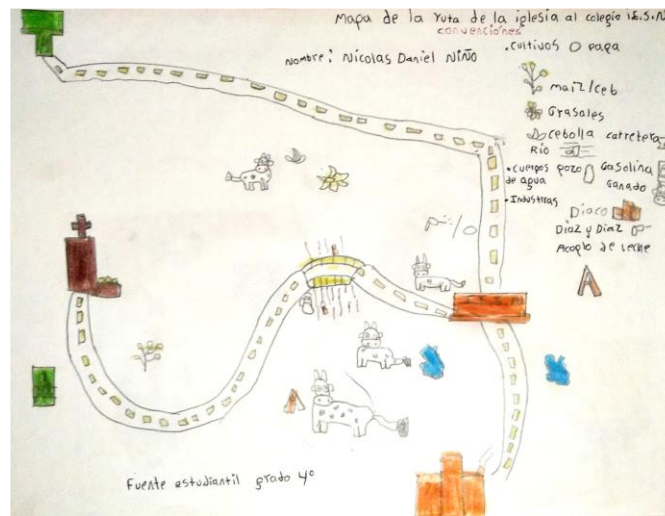 Mapa de la ruta de la iglesia al colegio I.E.S.N
convenciones
Nombre: Nicolas Daniel Niño
.cultivos O papa
maiz/ceb
Grasoles
cebolla carretera
Rio
.cuerpos pozo Gasolina
de agua Ganado
.Industrias
Diaco
Diaz y Diaz
Acopio de leche
Fuente estudiantil grado 4º